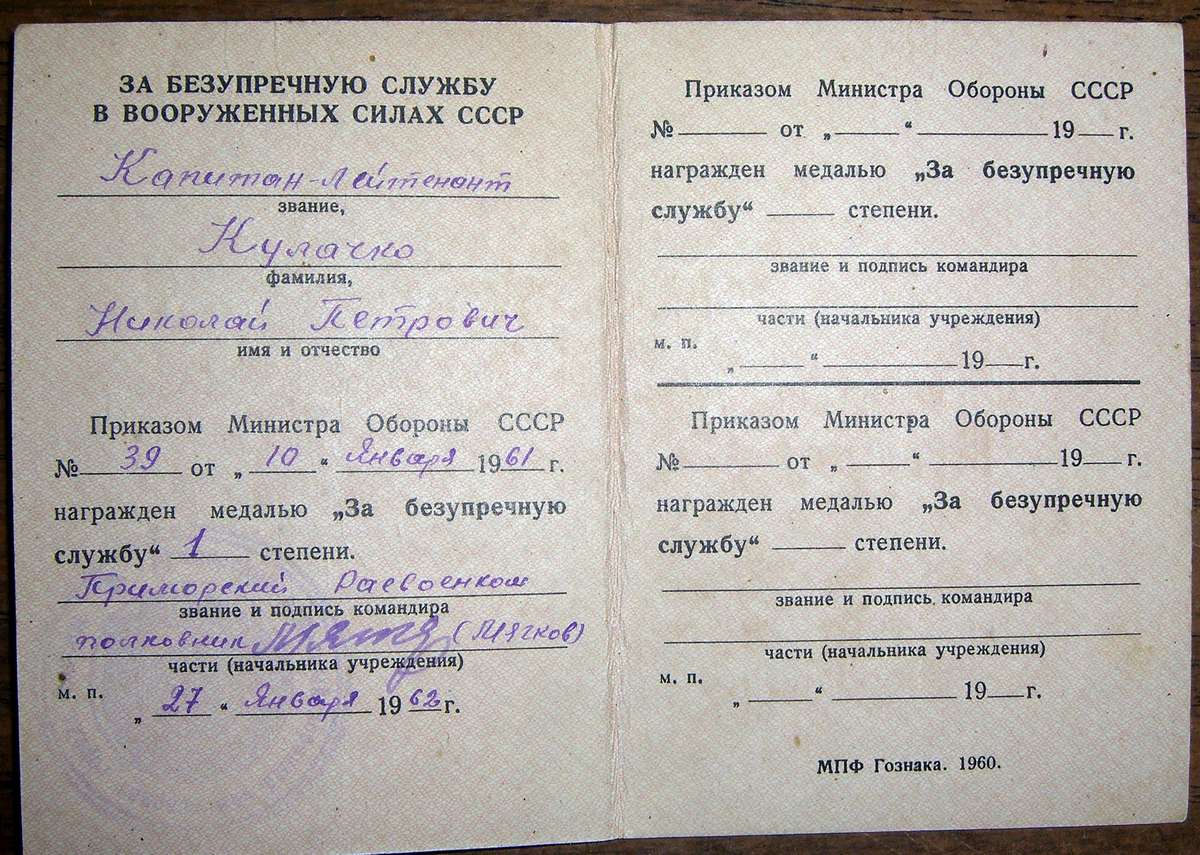 ЗА БЕЗУПРЕЧНУЮ СЛУЖБУ
В ВООРУЖЕННЫХ СИЛАХ СССР
Капитан-Лейтенант
звание,
Кулачко
фамилия,
Николай Петрович
имя и отчество
Приказом Министра Обороны СССР
№ 39 от „ 10 “ Января 1961 г.
награжден медалью „За безупречную
службу“ 1 степени.
Приморский Раевоенком
звание и подпись командира
полковник (Мягков)
части (начальника учреждения)
м. п.
„ 27 “ Января 1962 г.
Приказом Министра Обороны СССР
№ от „ “ 19 г.
награжден медалью „За безупречную
службу“ степени.
звание и подпись командира
части (начальника учреждения)
м. п.
„ “ 19 г.
Приказом Министра Обороны СССР
№ от „ “ 19 г.
награжден медалью „За безупречную
службу“ степени.
звание и подпись командира
части (начальника учреждения)
м. п.
„ “ 19 г.
МПФ Гознака. 1960.